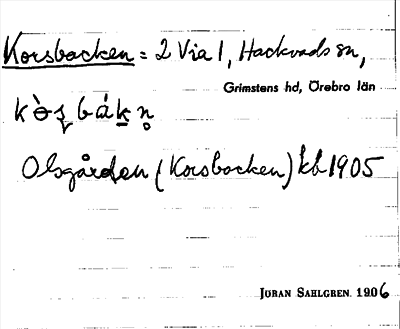 Korsbacken = 2 Via 1, Hackvads sn,
Grimstens hd, Örebro län
Olsgården (Korsbacken) kb 1905
JÖRAN SAHLGREN. 1906